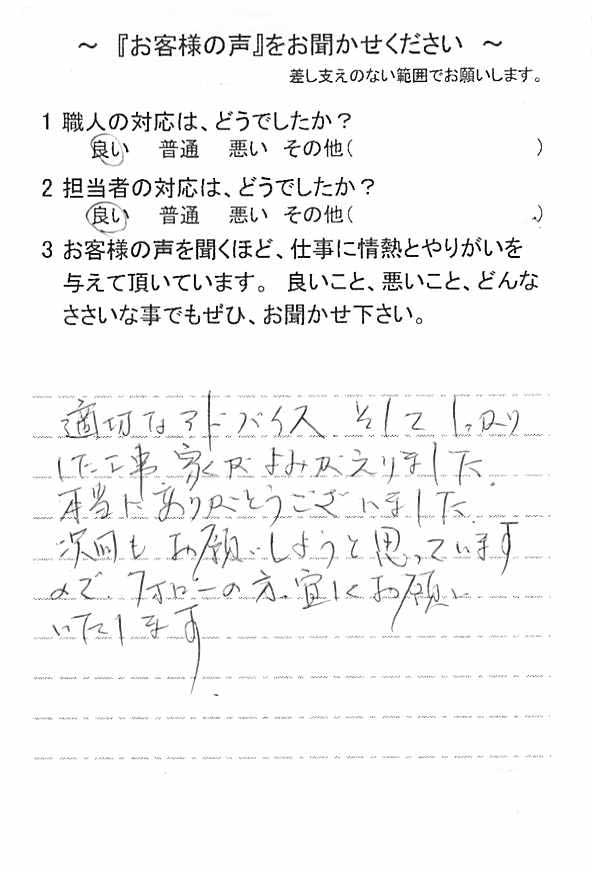 ～『お客様の声』をお聞かせください ～
差し支えのない範囲でお願いします。
1 職人の対応は、どうでしたか？
良い 普通 悪い その他( )
2 担当者の対応は、どうでしたか？
良い 普通 悪い その他( )
3 お客様の声を聞くほど、仕事に情熱とやりがいを
与えて頂いています。 良いこと、悪いこと、どんな
ささいな事でもぜひ、お聞かせ下さい。
適切なアドバイス、そして しっかり
した工事、家がよみがえりました。
本当にありがとうございました。
次回もお願いしようと思っています
ので、フォローの方、宜しくお願い
いたします